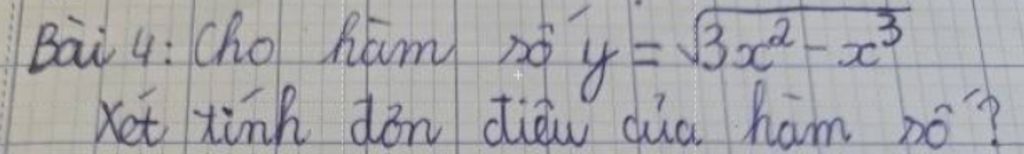 Bài 4: Cho hàm số y = √(3x² - x³)
Xét tính đơn điệu của hàm số?